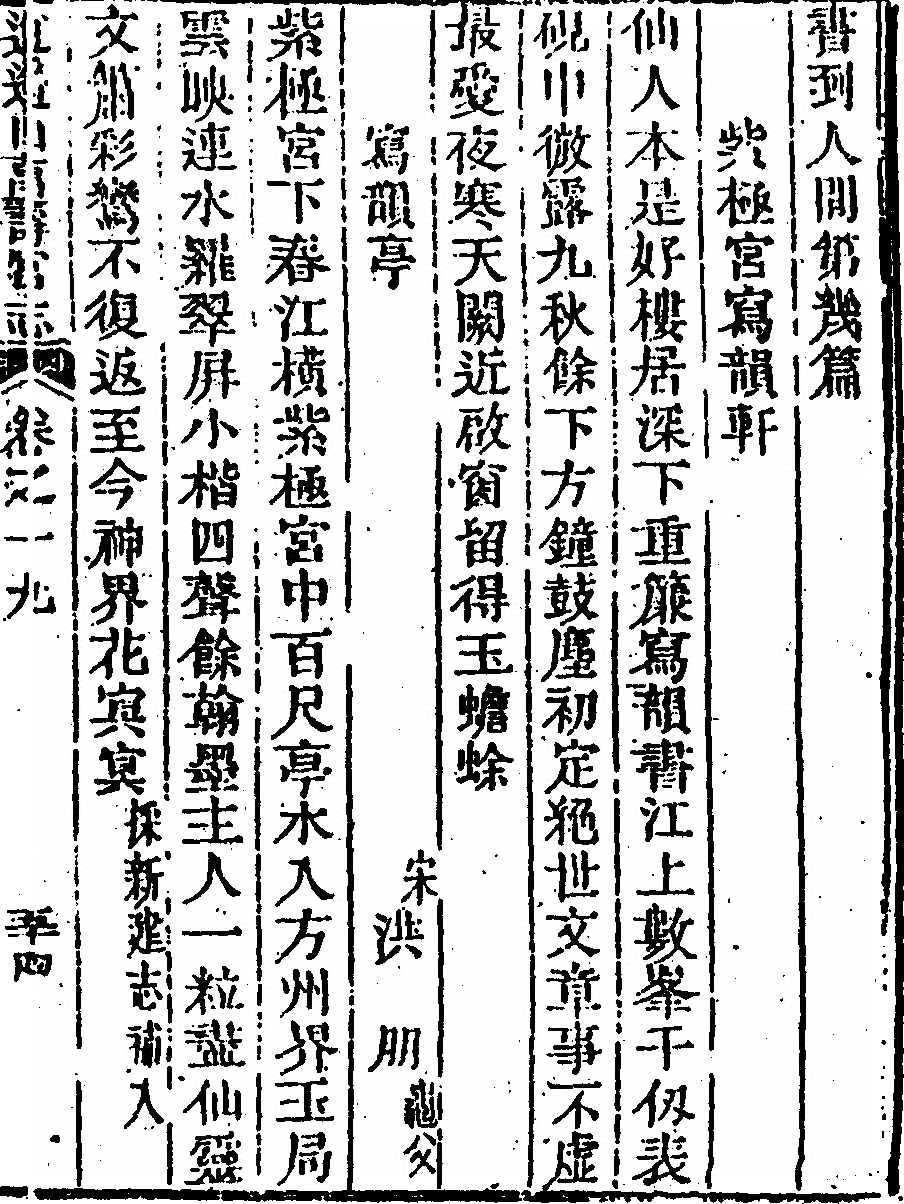 書到人間第幾篇
紫極宮寫韻軒
仙人本是好樓居深下重簾寫韻書江上數峯千仭表
硯中微露九秋餘下方鐘鼓塵初定絕世文章事不虛
最愛夜寒天闕近啟窗留得玉蟾蜍
寫韻亭 宋洪朋龜父
紫極宮下春江橫紫極宮中百尺亭水入方州界玉局
雲映連水羅翠屏小楷四聲餘翰墨主人一粒盡仙靈
文簫彩鸞不復返至今神界花㝠㝠採新建志補入
逍遙山萬壽宮志 卷之一九